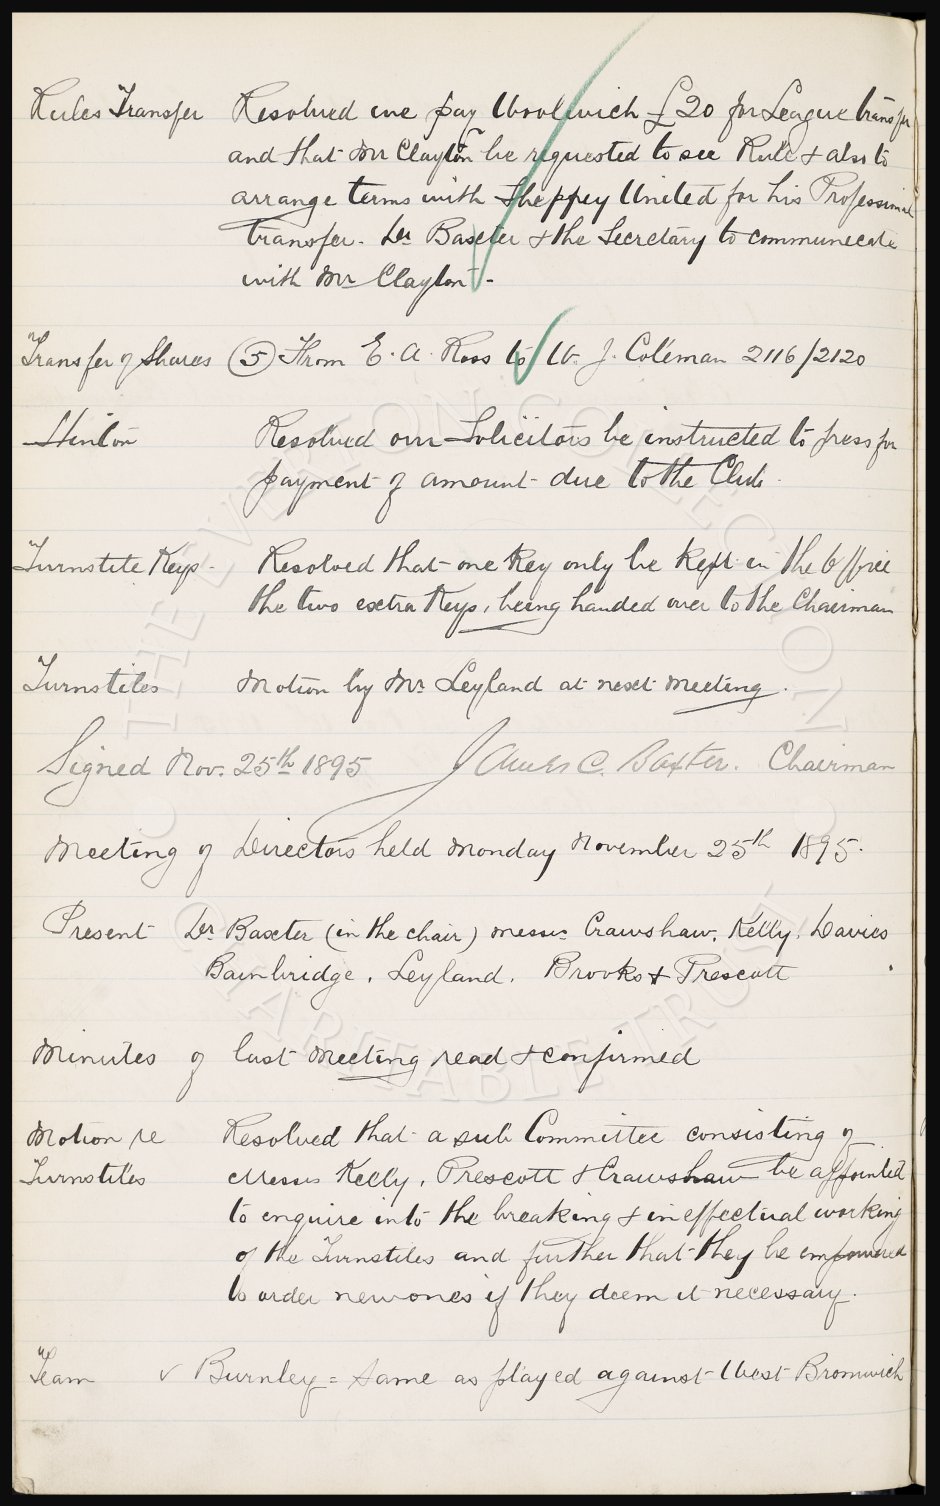 Rules Transfer Resolved we pay Woolwich £20 for League transfer
and that Mr Clayton be requested to see Rule & also to
arrange terms with Sheppey United for his Professional
transfer. Dr Baxter & the Secretary to communicate
with Mr Clayton.
Transfer of Shares (5) From E. A. Ross to W. J. Coleman 2116/2120
Hinton Resolved our Solicitors be instructed to press for
payment of amount due to the Club.
Turnstile Keys. Resolved that one Key only be kept in the Office
the two extra Keys, being handed over to the Chairman
Turnstiles Motion by Mr Leyland at next meeting.
Signed Nov. 25th 1895 James C. Baxter. Chairman
Meeting of Directors held Monday November 25th 1895.
Present Dr Baxter (in the chair) Messrs Crawshaw, Kelly, Davies
Bainbridge, Leyland, Brooks & Prescott
Minutes of last meeting read & confirmed
Motion re Resolved that a sub Committee consisting of
Turnstiles Messrs Kelly, Prescott & Crawshaw be appointed
to enquire into the breaking & ineffectual working
of the Turnstiles and further that they be empowered
to order new ones if they deem it necessary.
Team v Burnley = Same as played against West Bromwich
THE EVERTON COLLECTION
CHARITABLE TRUST